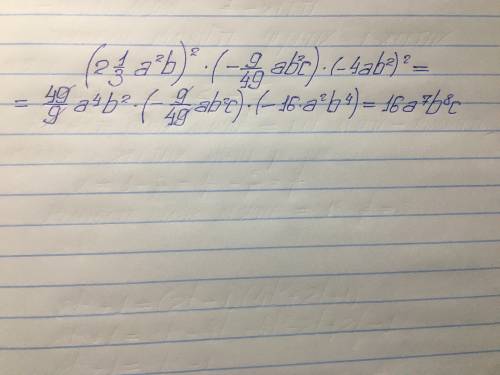 (2 1/3 a²b)² · (-9/49 ab²c) · (-4ab²)² =
= 49/9 a⁴b² · (-9/49 ab²c) · (-16·a²b⁴) = 16a⁷b⁸c